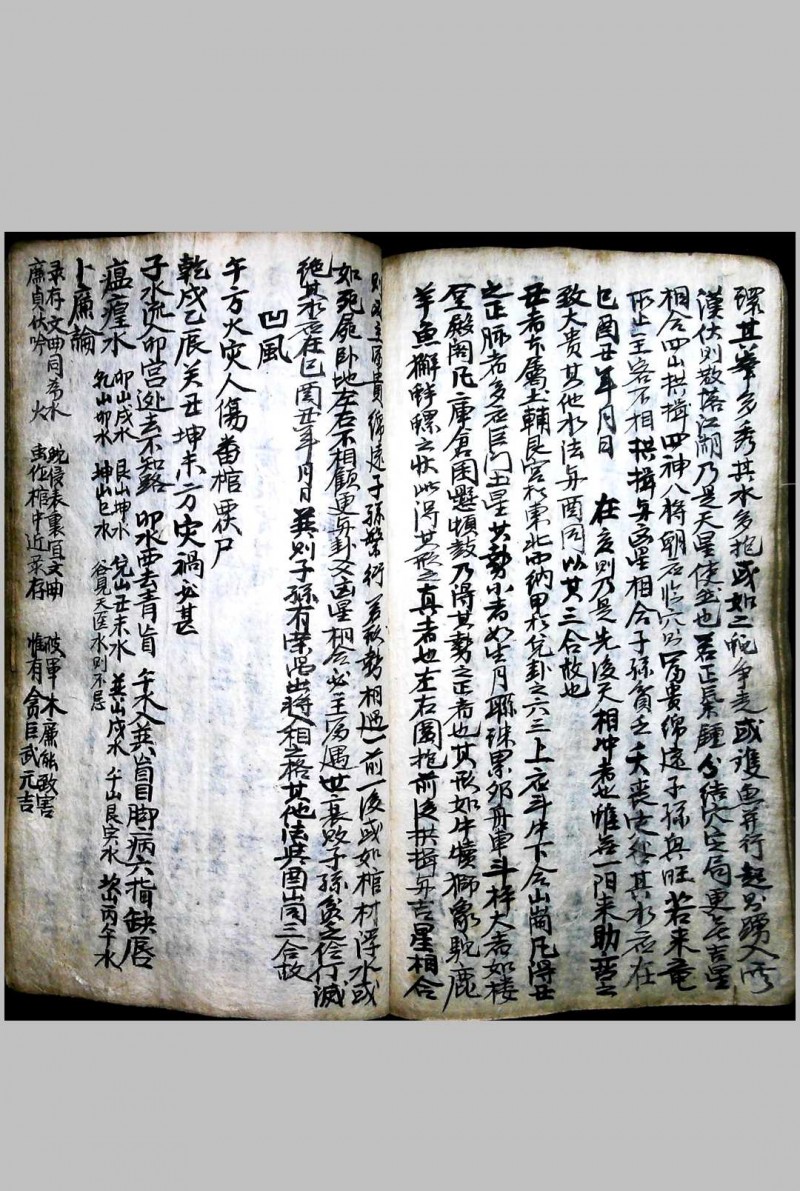 環其峯多秀其水多抱或如二蛇争走或雙魚并行起則踴入所
漢伏則散落江湖乃是天星使然也若正氣鍾分結穴定局更吉星
相合四山拱揖四神八將朝石临穴则富貴綿遠子孫興旺若来竜
不止主客不相拱揖与凶星相合子孫貧乏夭丧定然其水应在
巳酉丑年月日 在亥則乃是先後天相冲者也惟一阳来助
致大貴其他水法与酉同以其三合故也
丑者本屬土輔艮宫於東北而納甲於兌卦之六三上应斗牛下令山崗凡得丑
之正脉者多应巨门土星其勢小者如生月聯珠累卵舟車斗梓大者如楼
堂殿阁凡庫倉困懸頓鼓乃得其勢之正者也其形如牛犢獅象駝鹿
羊魚獬鮮螺之状此得其形之真者也左右圍抱前後拱揖与吉星相合
則主富貴綿遠子孫繁衍若形勢相過一前一後或如棺材浮水或
如死屍卧地左右不相顧更与卦又凶星相合必主 世之衰敗子孫貧乏伶仃滅
絶其水应在巳酉丑年月日 巽則子孫有荣 出將入相之格其他法与酉山同三合故
凹風
午方火灾人傷番棺要尸
乾戌乙辰癸丑坤未方灾禍必甚
子水流入卯宫逊去不知路 卯水酉去青盲 午水入巽盲目脚病六指缺唇
瘟瘟水 卯山戌水 艮山坤水 兌山丑未水 巽山戌水 午山艮寅水 丙午水
乾山卯水 坤山巳水 谷見天医水則不忌
卜廉論
录存文曲同希水 既侵表裏宜文曲 破軍木廉能致害
廉貞伏吟火 虫作棺中近录存 惟有貪巨武元吉